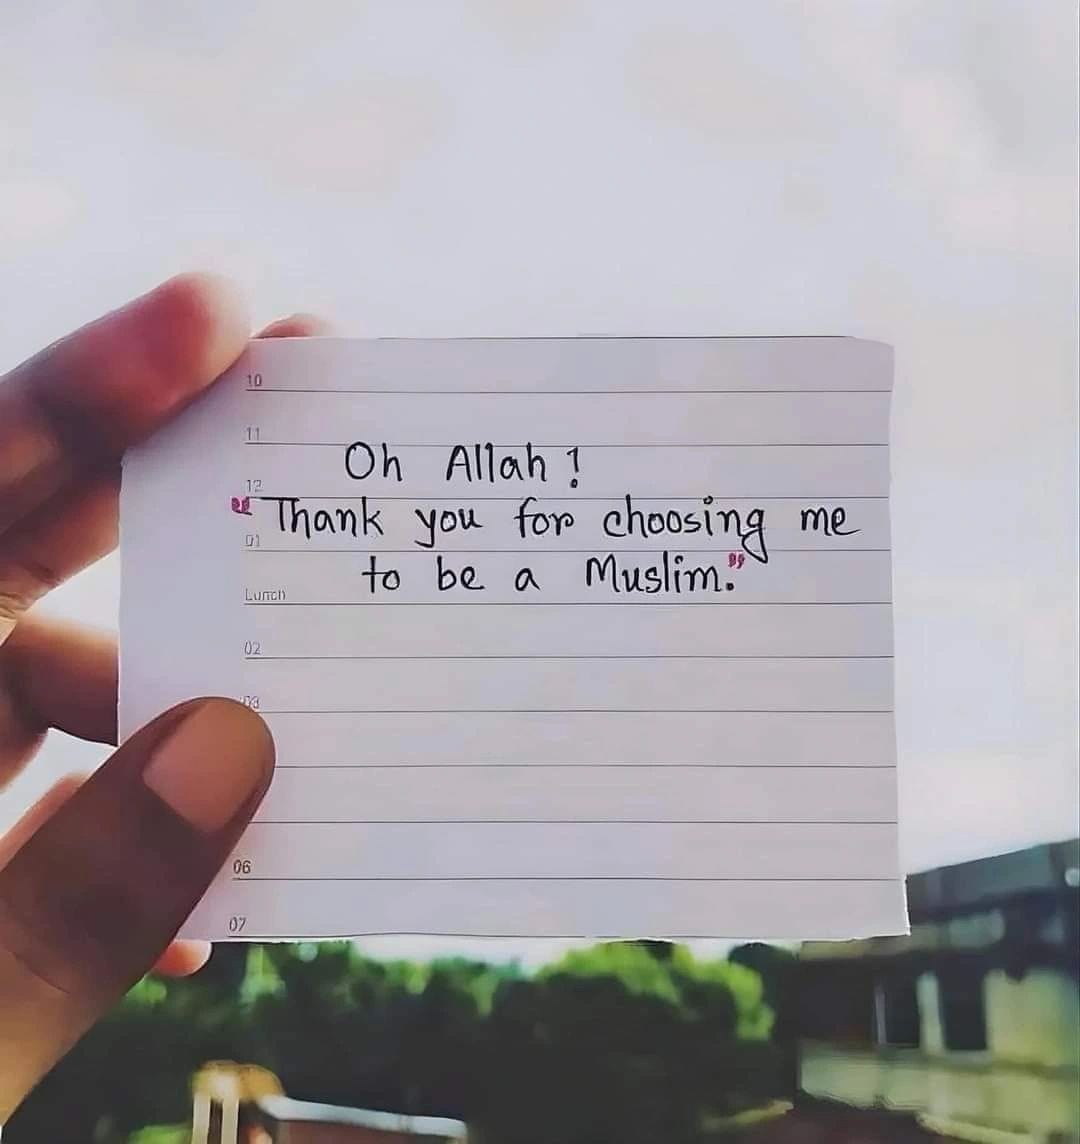 10
11
Oh Allah !
12
“Thank you for choosing me
01
to be a Muslim.”
Lunch
02
03
06
07